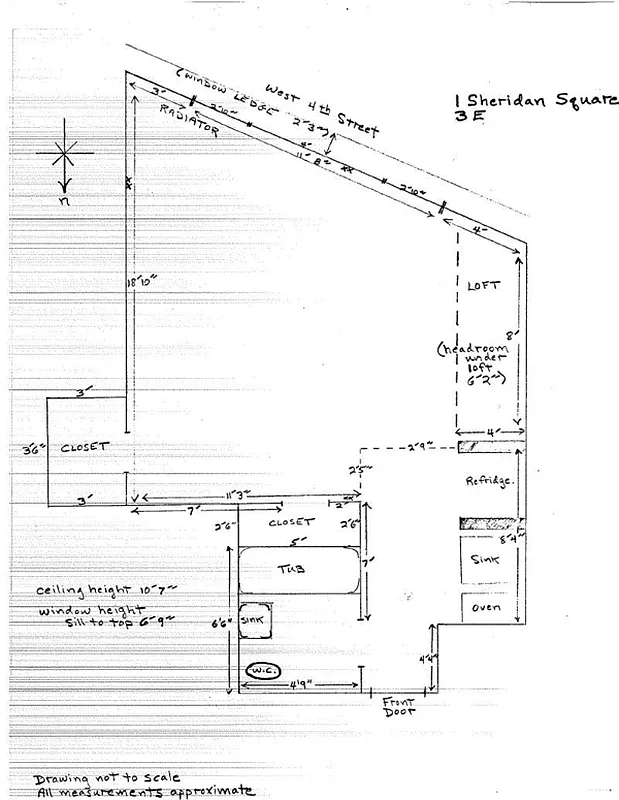 West 4th Street
(WINDOW LEDGE 2'3")
1 Sheridan Square
3E
3'
2'10"
4'
2'10"
RADIATOR
11'8"
4'
n
18'10"
LOFT
8'
(headroom
under
loft
6'2")
3'
4'
3'6"
CLOSET
2'9"
2'5"
Refridge.
3'
11'3"
7'
2'
2'6"
CLOSET
2'6"
8'4"
5'
TUB
7'
Sink
Ceiling height 10'7"
window height
Sill to top 6'9"
6'6"
SINK
Oven
W.C.
4'4"
4'9"
Front
Door
Drawing not to scale
All measurements approximate